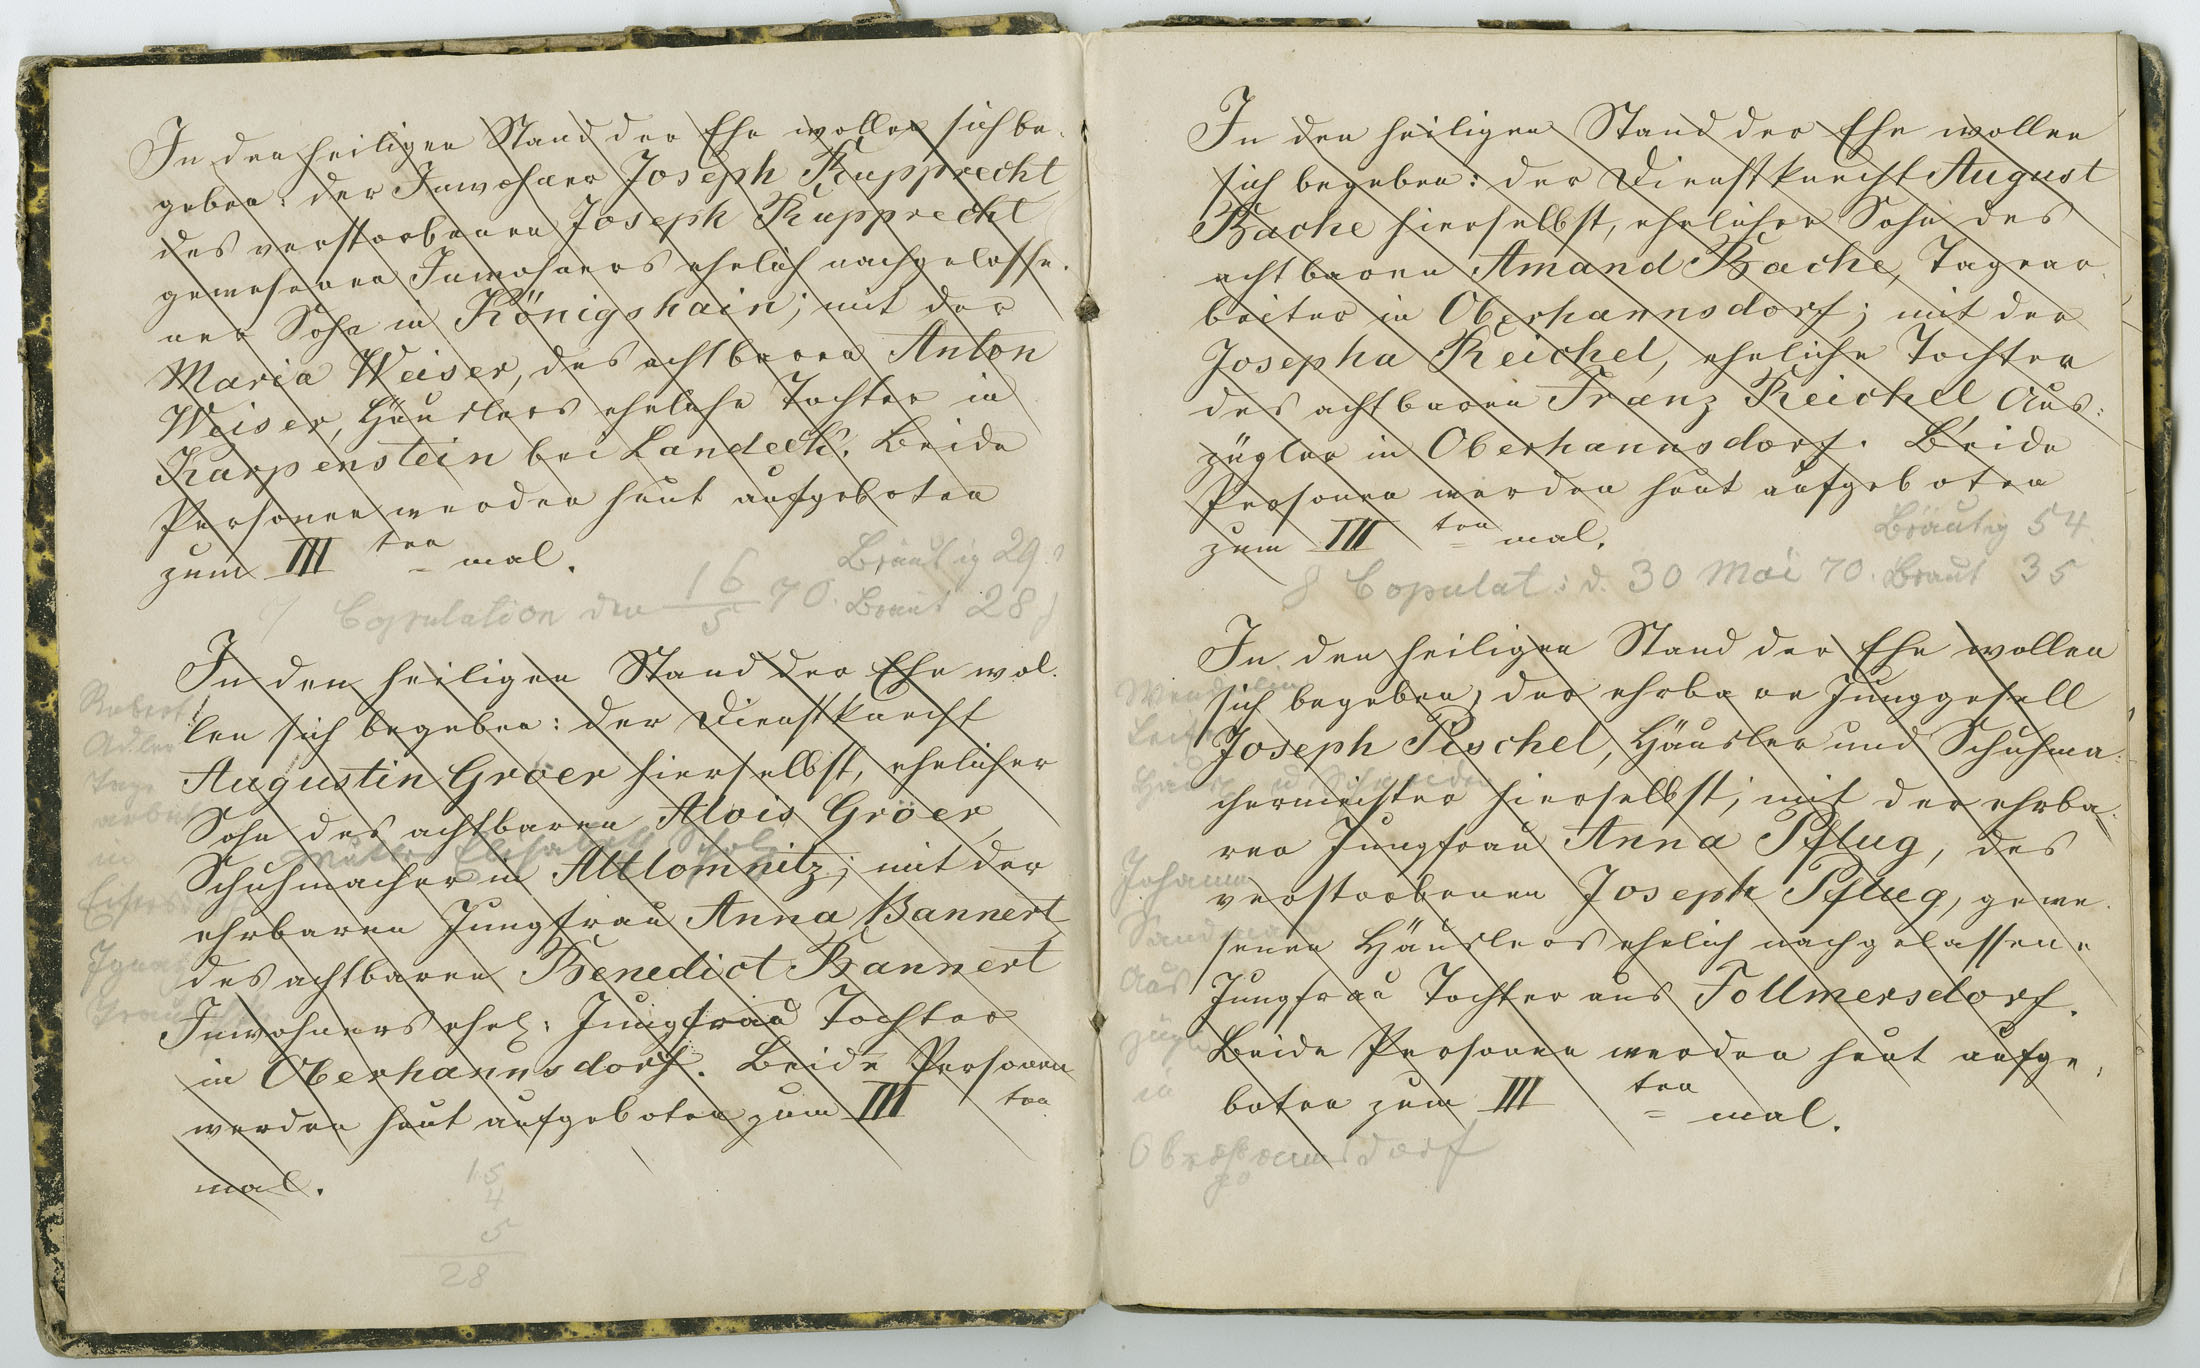 In den heiligen Stand der Ehe wollen sich be-
geben: der Inwohner Joseph Rupprecht
des verstorbenen Joseph Rupprecht
gewesenen Inwohners ehelich nachgelasse-
ner Sohn in Königshain; mit der
Maria Weiser, des achtbaren Anton
Weiser, Häuslers eheliche Tochter in
Karpenstein bei Landeck. Beide
Personen werden heut aufgeboten
zum III ten mal.
Bräutig 29
7 Copulation den 16/5 70. Braut 28 J
In den heiligen Stand der Ehe wol-
len sich begeben: der Dienstknecht
Augustin Gröer hierselbst, ehelicher
Sohn des achtbaren Alois Gröer,
Mutter Elisabeth Scholz
Schuhmacher in Altlomnitz; mit der
ehrbaren Jungfrau Anna Bannert
des achtbaren Benedict Bannert
Inwohners ehel: Jungfrau Tochter
in Oberhannsdorf. Beide Personen
werden heut aufgeboten zum III ten
mal.
Robert
Adler
Tage
arbeit
in
Ignatz
15
4
5
28
In den heiligen Stand der Ehe wollen
sich begeben: der Dienstknecht August
Bache hierselbst, ehelicher Sohn des
achtbaren Amand Bache, Tagear-
beiter in Oberhannsdorf; mit der
Josepha Reichel, eheliche Tochter
des achtbaren Franz Reichel Aus-
zügler in Oberhannsdorf. Beide
Personen werden heut aufgeboten
zum III ten mal.
Bräutig 54
8 Copulat: d. 30 Mai 70. Braut 35
In den heiligen Stand der Ehe wollen
sich begeben, der ehrbare Junggesell
Joseph Pischel, Häusler und Schuhma-
chermeister hierselbst; mit der ehrba-
ren Jungfrau Anna Pflug, des
verstorbenen Joseph Pflug, gewe-
senen Häuslers ehelich nachgelassene
Jungfrau Tochter aus Follmersdorf.
Beide Personen werden heut aufge-
boten zum III ten mal.
Johann
Aus
zügl
in
Oberhannsdorf